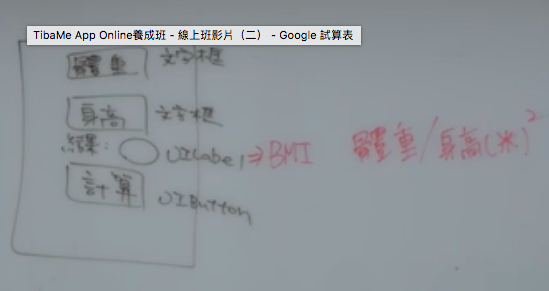 TibaMe App Online養成班 - 線上班影片（二） - Google 試算表
體重 文字框
身高 文字框
結果: UILabel ⇒ BMI 體重/身高(米)²
計算 UIButton